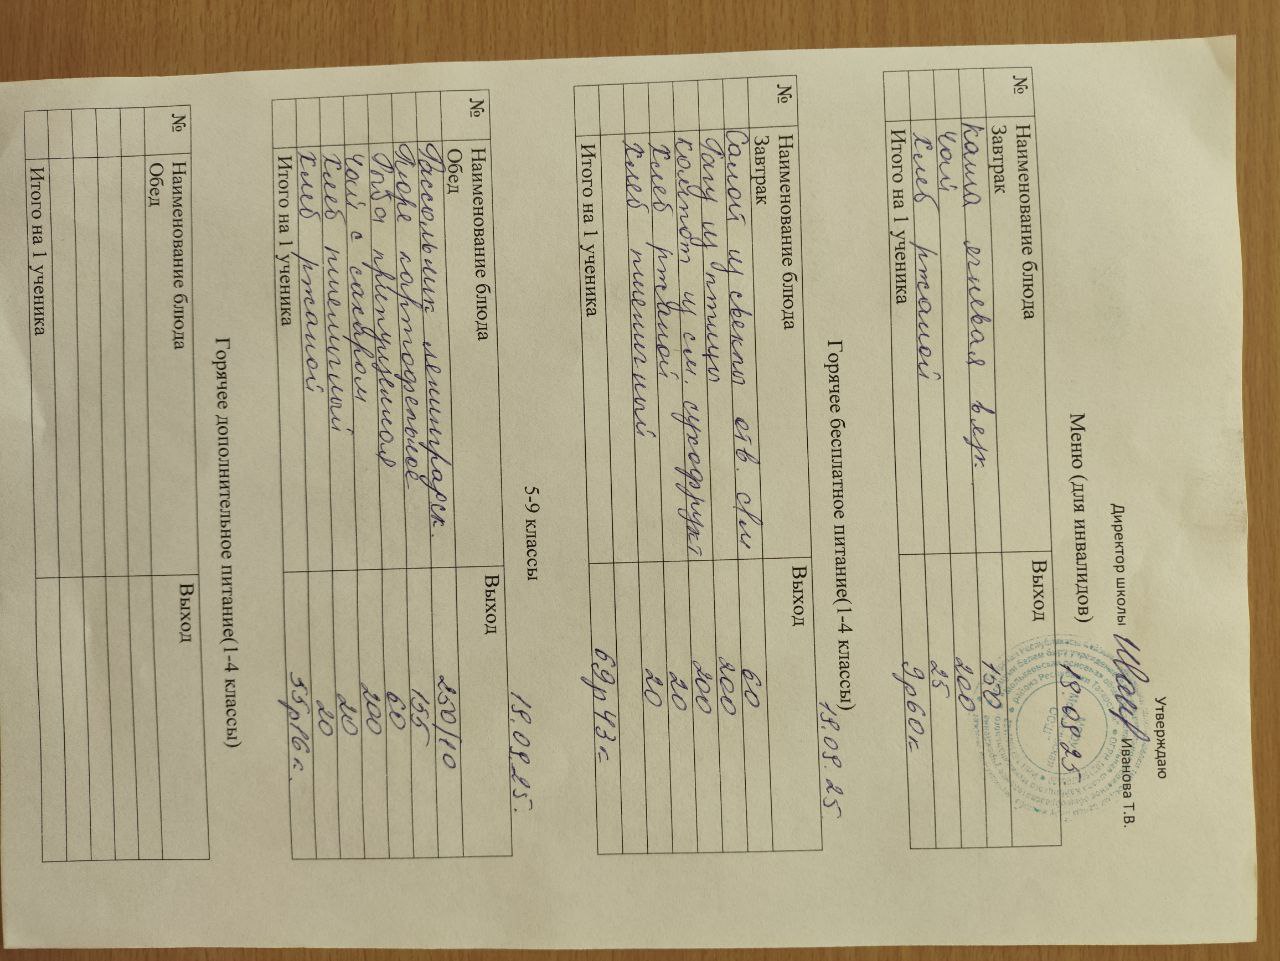 Утверждаю
Директор школы Иванова Т.В.
18.09.25
Меню (для инвалидов)
№ Наименование блюда Выход
Завтрак
Каша ячневая вязк. 150
Чай 200
Хлеб ржаной 25
Итого на 1 ученика 9р60к
Горячее бесплатное питание(1-4 классы)
18.09.25
№ Наименование блюда Выход
Завтрак
Салат из свеклы отв. 60
Рагу из птицы 200
Компот из см. сухофрукт 200
Хлеб ржаной 20
Хлеб пшеничный 20
Итого на 1 ученика 69р43к
5-9 классы
18.09.25.
№ Наименование блюда Выход
Обед
Рассольник ленинградск. 250/10
Пюре картофельное 155
Рыба припущенная 60
Чай с сахаром 200
Хлеб пшеничный 20
Хлеб ржаной 20
Итого на 1 ученика 55р16к.
Горячее дополнительное питание(1-4 классы)
№ Наименование блюда Выход
Обед
Итого на 1 ученика